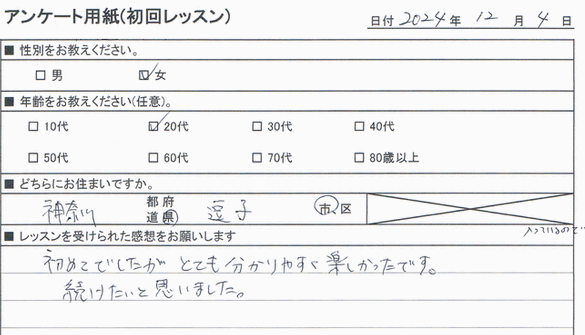 アンケート用紙(初回レッスン)
日付 2024 年 12 月 4 日
■ 性別をお教えください。
□ 男 ☑ 女
■ 年齢をお教えください(任意)。
□ 10代 ☑ 20代 □ 30代 □ 40代
□ 50代 □ 60代 □ 70代 □ 80歳以上
■ どちらにお住まいですか。
神奈川 都府道県 逗子 市・区
■ レッスンを受けられた感想をお願いします
初めてでしたが とても 分かりやすく 楽しかったです。
続けたいと思いました。